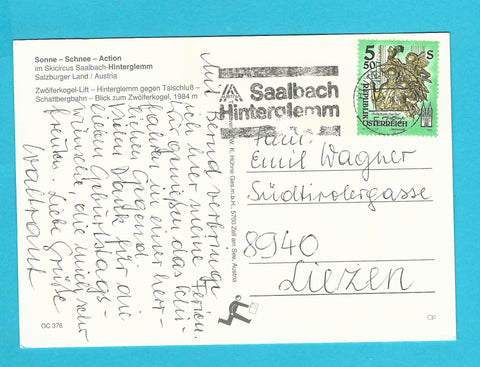 Sonne – Schnee – Action
im Skicircus Saalbach-Hinterglemm
Salzburger Land / Austria
Zwölferkogel-Lift – Hinterglemm gegen Talschluß –
Schattbergbahn – Blick zum Zwölferkogel, 1984 m
Mit Bernd verbringe
ich hier meine Ferien.
Wir genießen das
in einer herr-
lichen Gegend.
Vielen Dank für die
lieben Geburtstags-
wünsche, die mich sehr
freuten. Liebe Grüße
Waltraut
OC 376
W. K. Höhne Ges.m.b.H., 5700 Zell am See, Austria
Saalbach
Hinterglemm
5 S
50
REPUBLIK
ÖSTERREICH
Emil Wagner
Südtirolergasse
8940
Liezen